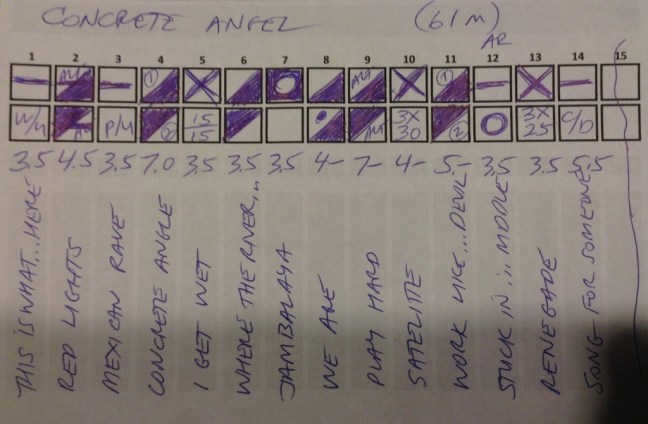 CONCRETE ANGEL (61M)
AR
1 2 3 4 5 6 7 8 9 10 11 12 13 14 15
1 1
W/U P/U 2 15/15 3X 30 2 3X 25 C/D
3.5 4.5 3.5 7.0 3.5 3.5 3.5 4- 7- 4- 5- 3.5 3.5 5.5
THIS IS WHAT...HERE
RED LIGHTS
MEXICAN RAVE
CONCRETE ANGLE
I GET WET
WHERE THE RIVER...
JAMBALAYA
WE ARE
PLAY HARD
SATELITE
WORK LIKE...DEVIL
STUCK IN...MIDDLE
RENEGADE
SONG FOR SOMEONE